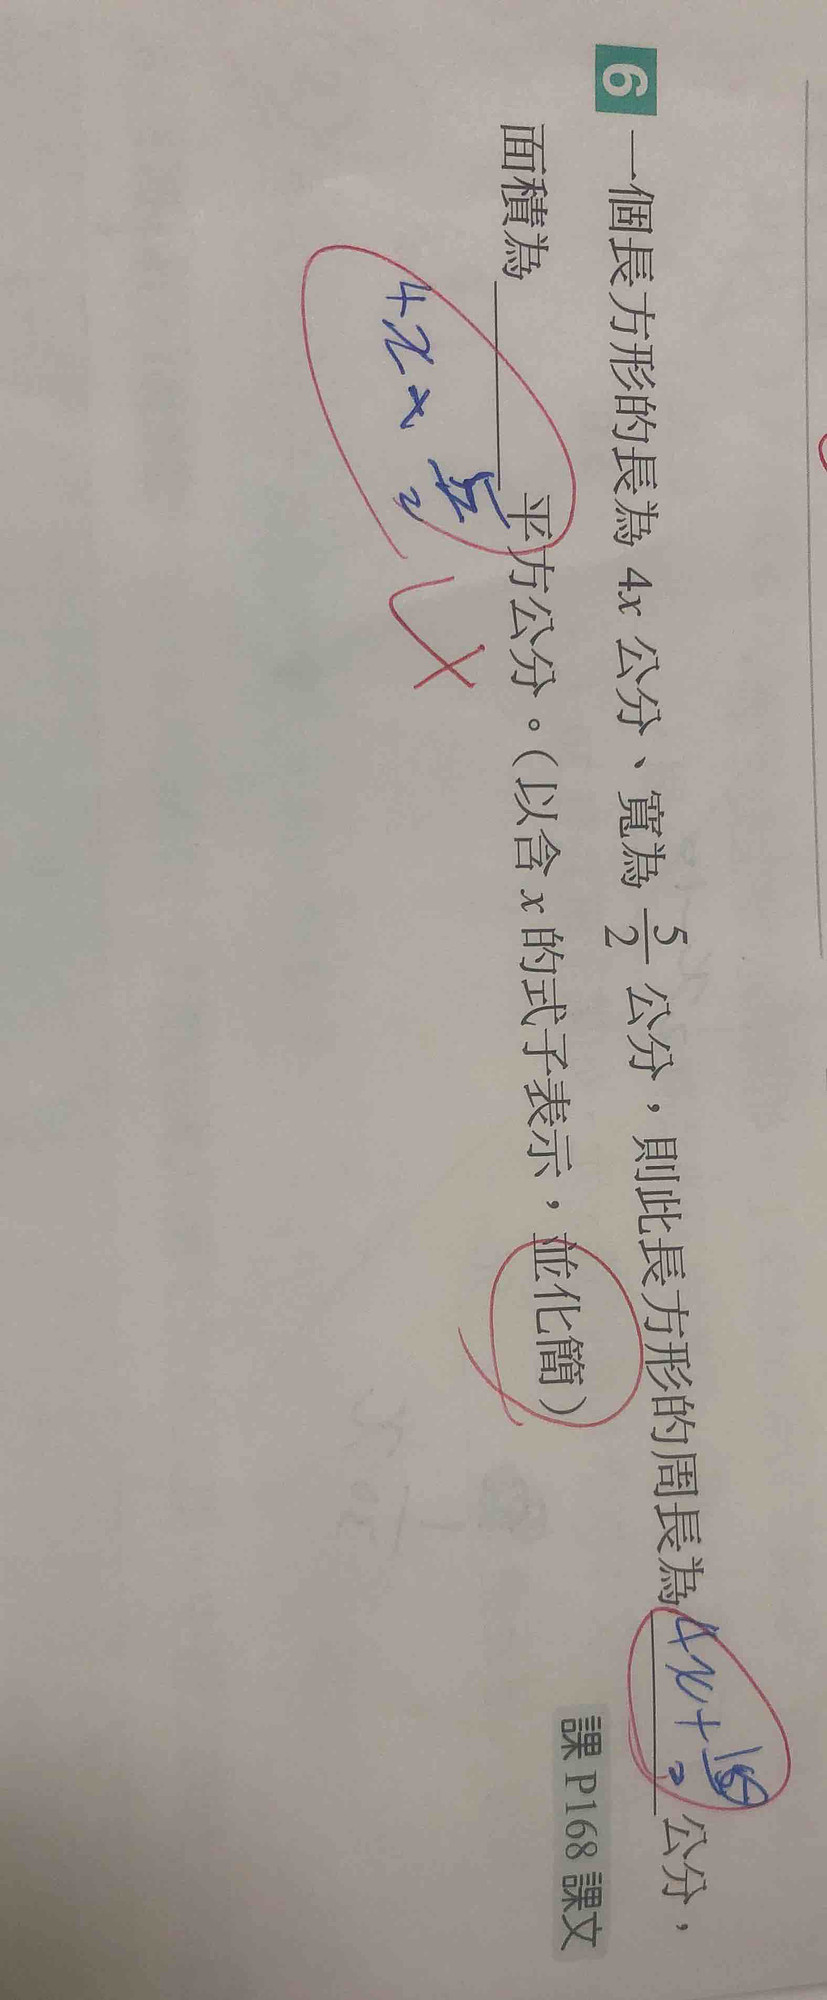 6 一個長方形的長為 4x 公分、寬為 5/2 公分，則此長方形的周長為 4x+ 公分，
面積為 4x×5/2 平方公分。(以含 x 的式子表示，並化簡)
課 P168 課文